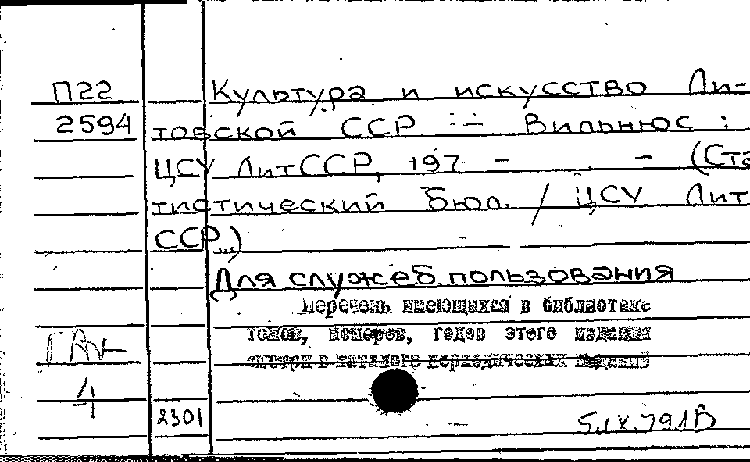 П22 Культура и искусство Ли-
2594 товской ССР. — Вильнюс :
ЦСУ ЛитССР, 197 - . - (Ста
тистический бюл. / ЦСУ Лит
ССР...)
Для служеб. пользования
Перечень имеющихся в библиотеке
томов, номеров, годов этого издания
смотри в каталоге периодических изданий
4
2301